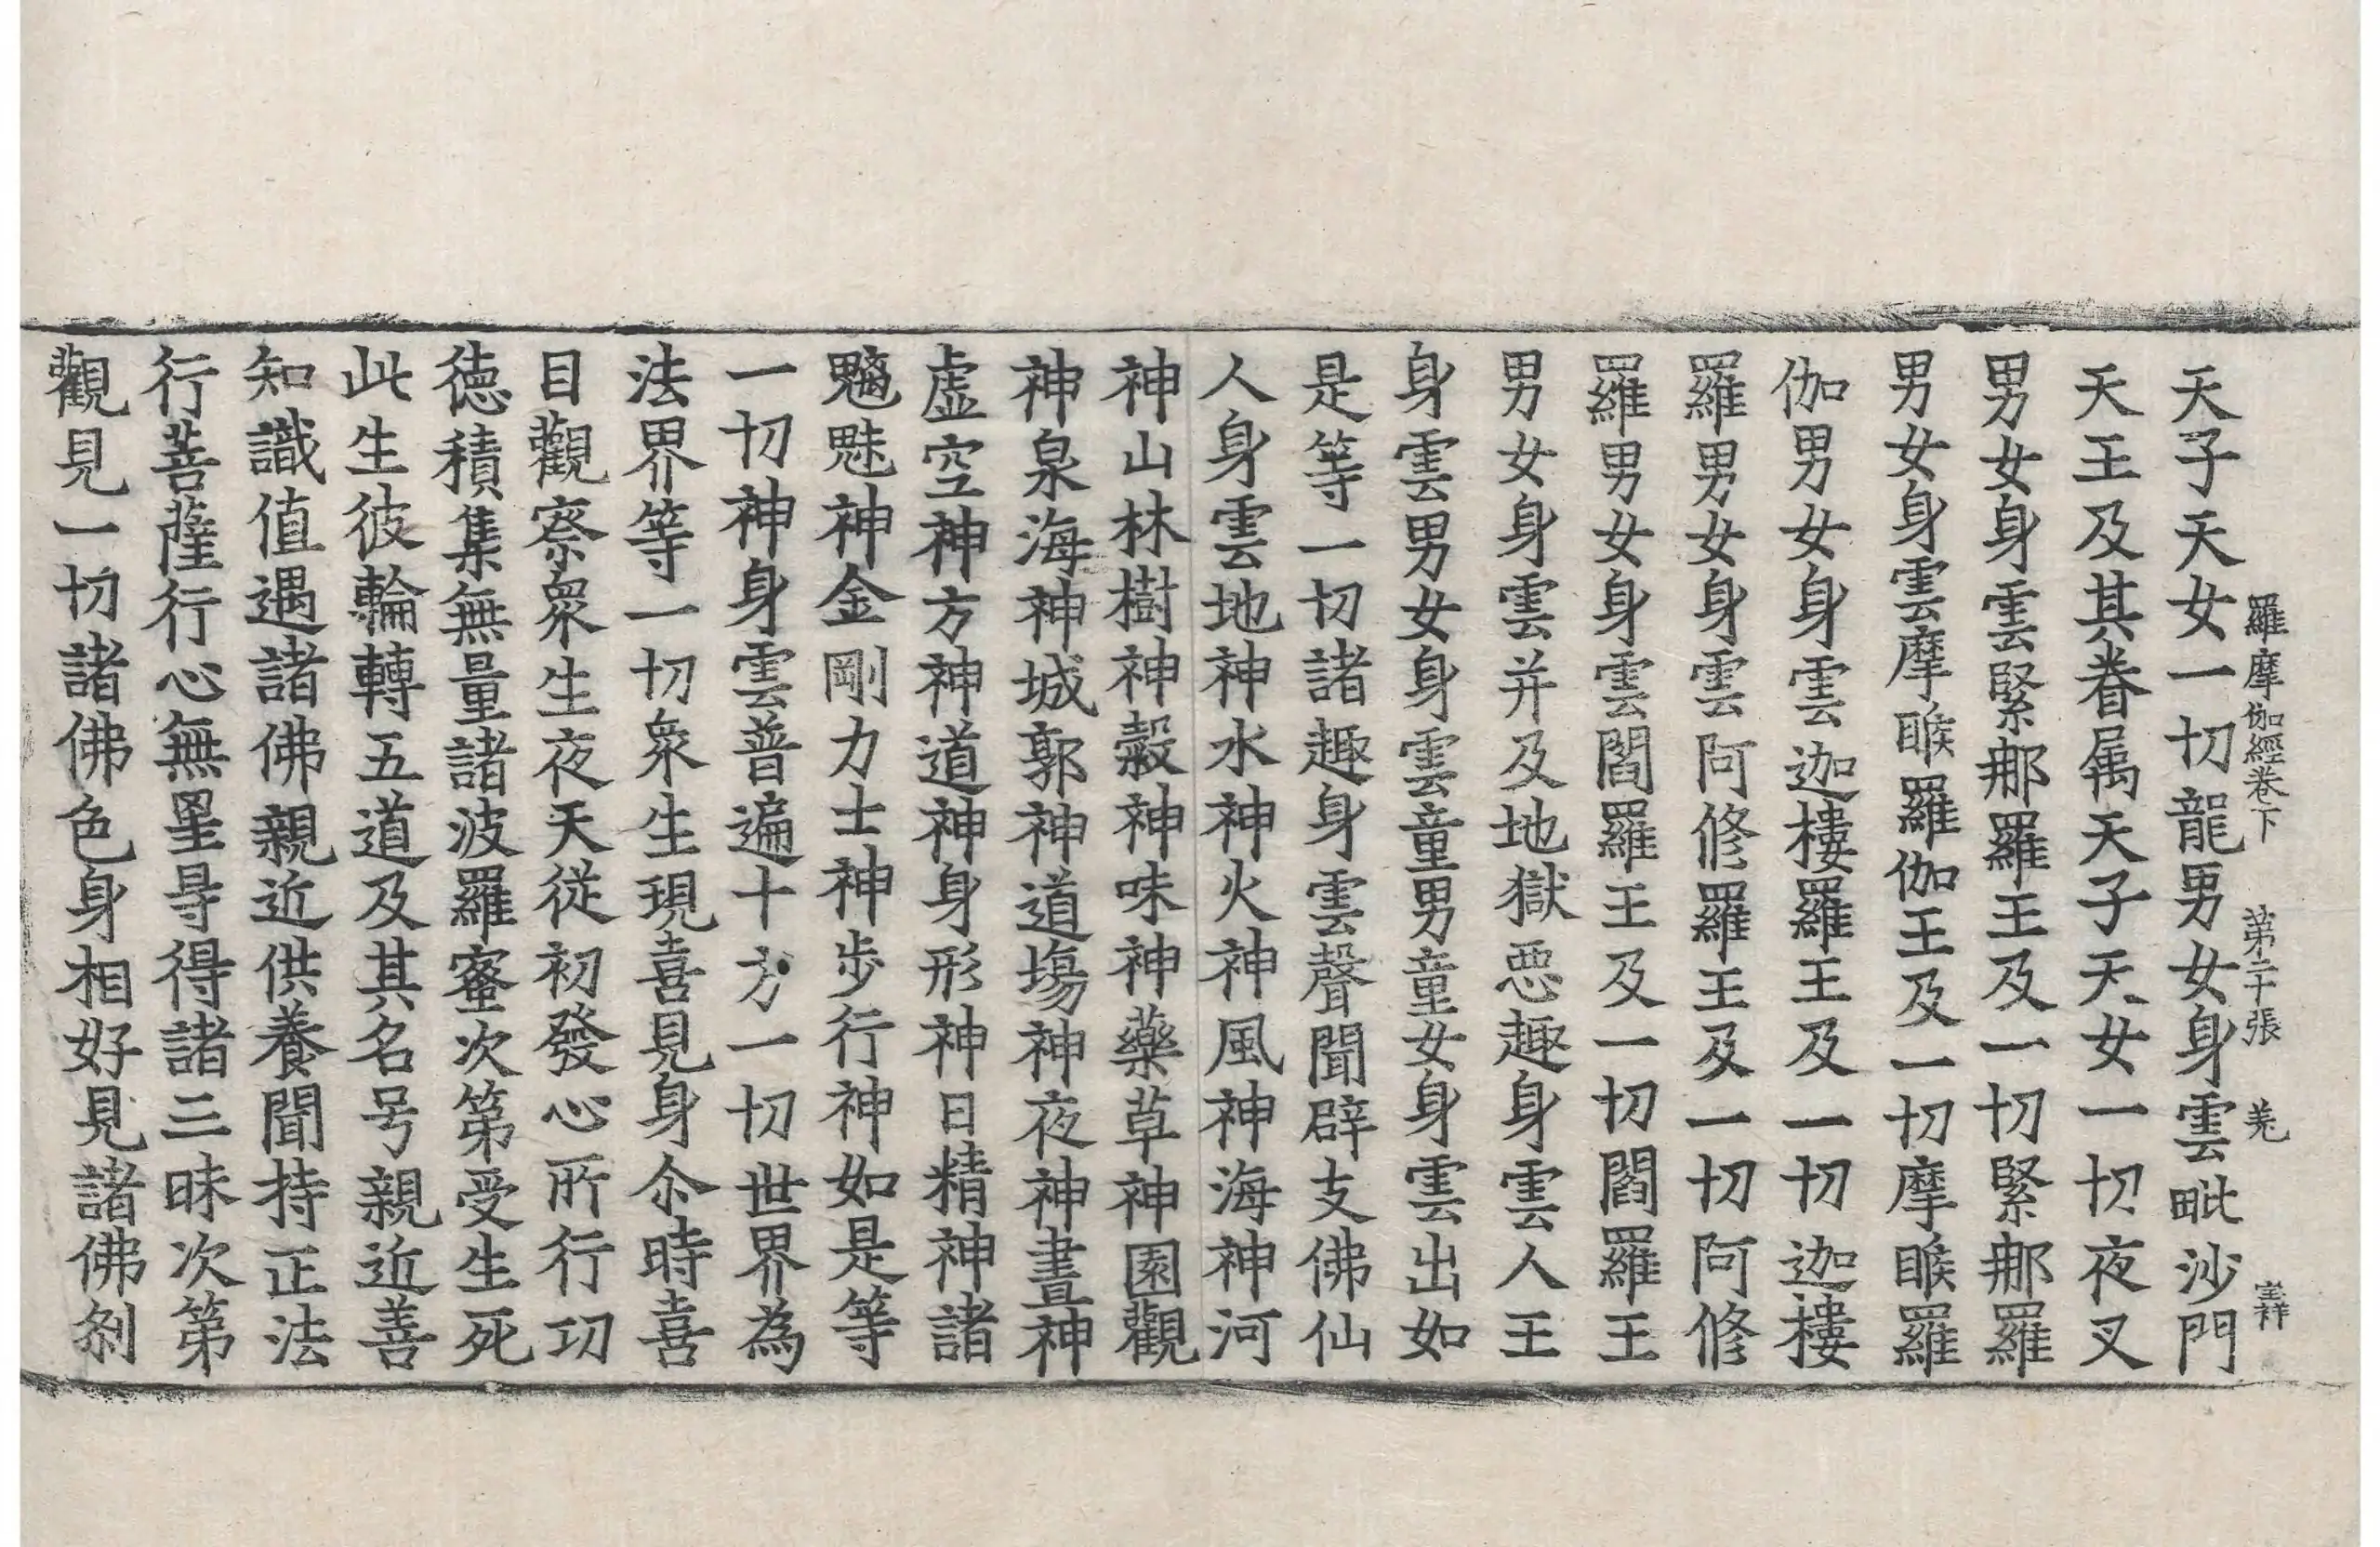 羅摩伽經卷下　第二十張　羌　宝祥
天子天女一切龍男女身雲毗沙門
天王及其眷属天子天女一切夜叉
男女身雲緊那羅王及一切緊那羅
男女身雲摩睺羅伽王及一切摩睺羅
伽男女身雲迦樓羅王及一切迦樓
羅男女身雲阿修羅王及一切阿修
羅男女身雲閻羅王及一切閻羅王
男女身雲并及地獄惡趣身雲人王
身雲男女身雲童男童女身雲出如
是等一切諸趣身雲聲聞辟支佛仙
人身雲地神水神火神風神海神河
神山林樹神穀神味神藥草神園觀
神泉海神城郭神道場神夜神晝神
虛空神方神道神身形神日精神諸
魑魅神金剛力士神步行神如是等
一切神身雲普遍十方一切世界為
法界等一切衆生現喜見身尒時喜
目觀察衆生夜天從初發心所行功
德積集無量諸波羅蜜次第受生死
此生彼輪轉五道及其名号親近善
知識值遇諸佛親近供養聞持正法
行菩薩行心無罣㝵得諸三昧次第
觀見一切諸佛色身相好見諸佛刹